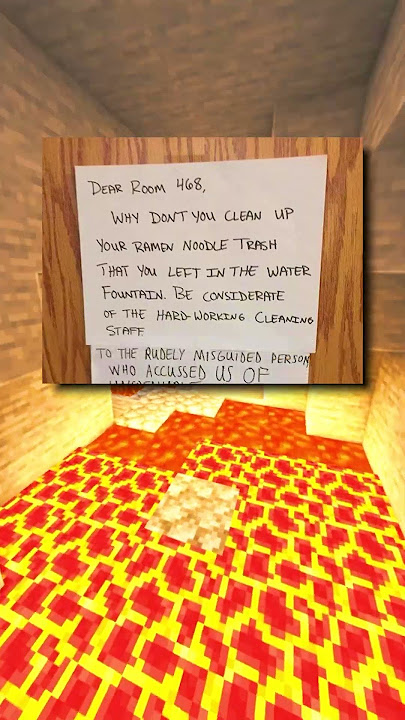 DEAR ROOM 468,
WHY DON'T YOU CLEAN UP
YOUR RAMEN NOODLE TRASH
THAT YOU LEFT IN THE WATER
FOUNTAIN. BE CONSIDERATE
OF THE HARD-WORKING CLEANING
STAFF
TO THE RUDELY MISGUIDED PERSON
WHO ACCUSSED US OF